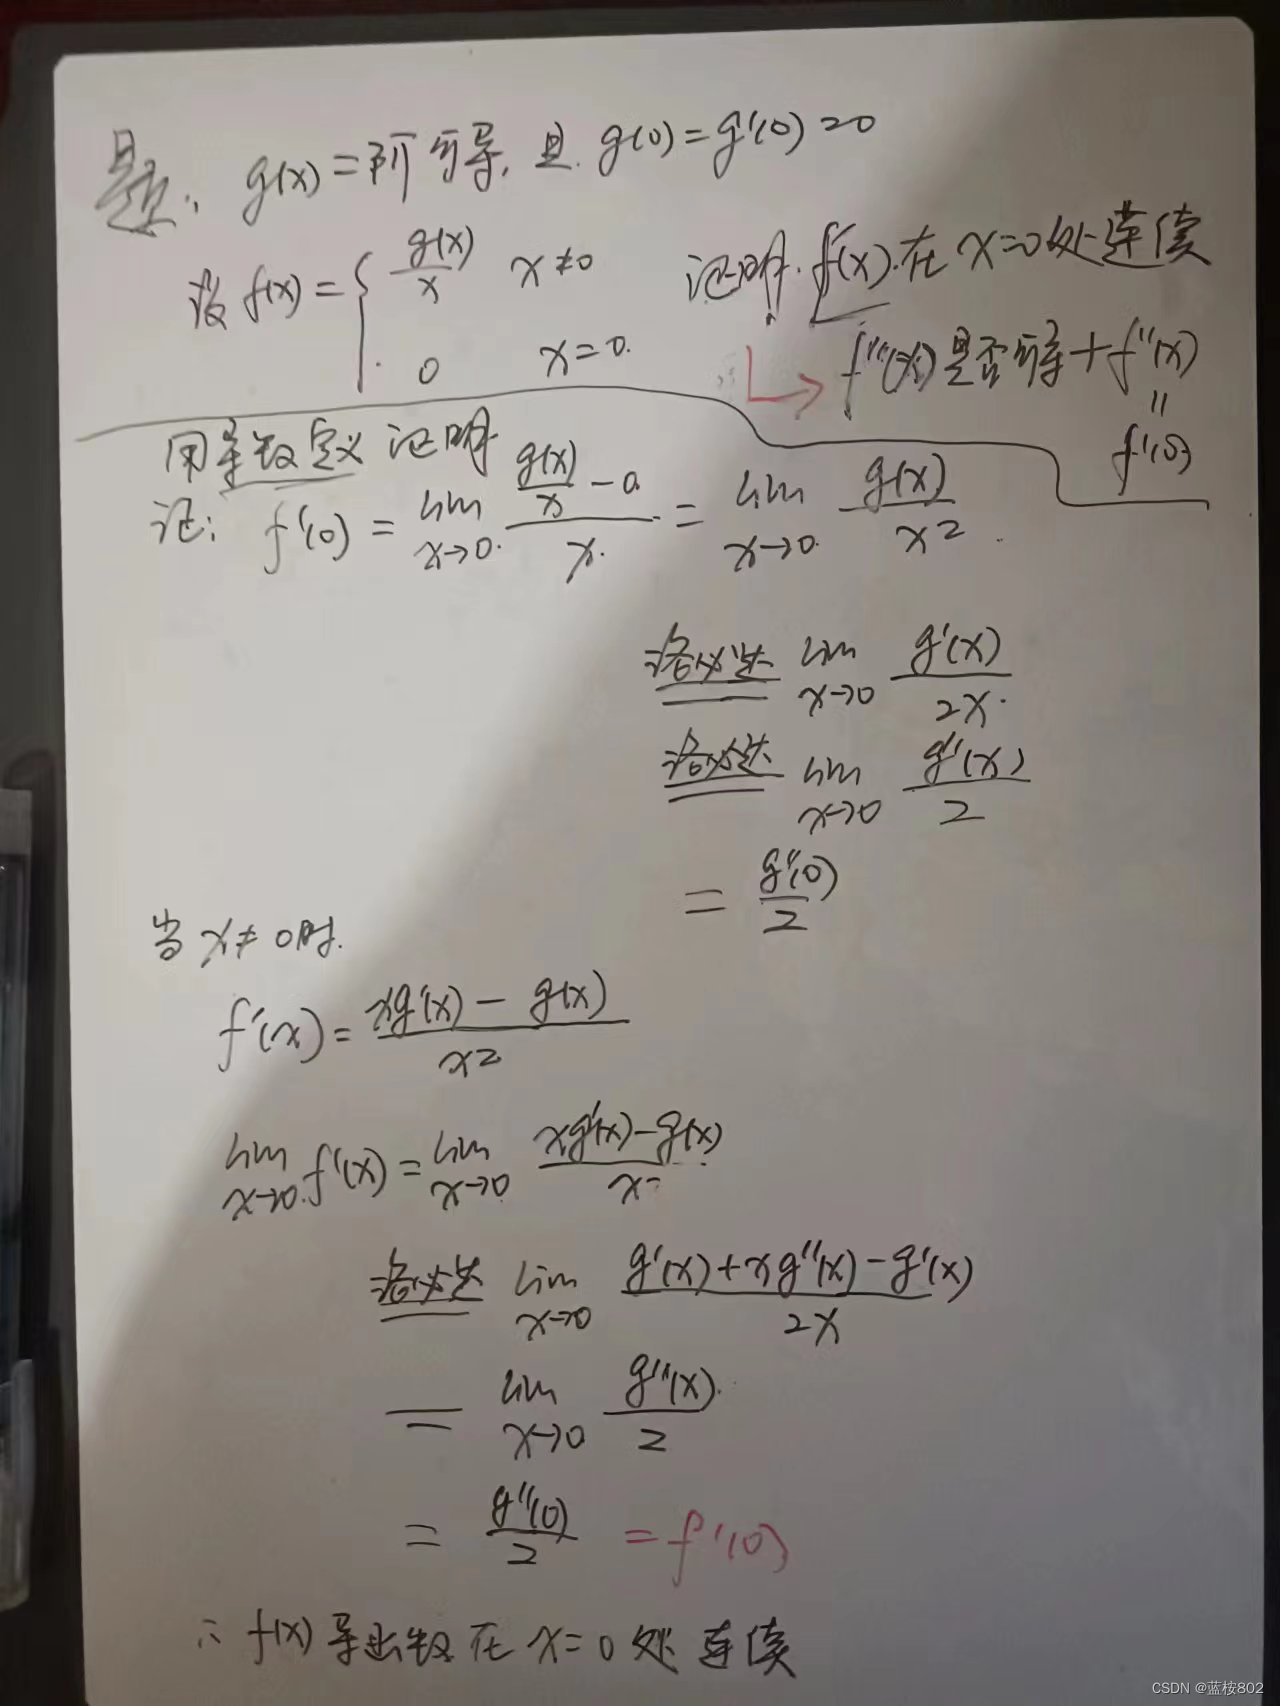 题: g(x)=阶可导,且 g(0)=g'(0)=0
设 f(x)={ g(x)/x x≠0
0 x=0.
证明. f'(x).在 x=0处连续
f''(x)是否可导+f''(x)
=
f'(0)
用导数定义证明
证: f'(0) = lim x→0. (g(x)/x - 0)/x. = lim x→0. g(x)/x2.
洛必达 lim x→0 g'(x)/2x.
洛必达 lim x→0 g''(x)/2
= g''(0)/2
当 x≠0时.
f'(x)= (xg'(x) - g(x))/x2
lim x→0. f'(x) = lim x→0 (xg'(x)-g(x))/x2
洛必达 lim x→0 (g'(x)+xg''(x)-g'(x))/2x
= lim x→0 g''(x)/2
= g''(0)/2 = f'(0)
∴ f(x) 导出数在 x=0 处连续
CSDN @蓝桉802